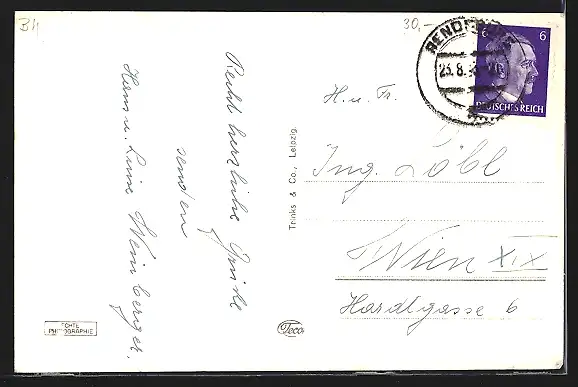 B4
30,-
RENDSBURG
23.8.
6
6
DEUTSCHES REICH
Recht herzliche Grüße
senden
Herm u. Luise Weinberger.
H. u. Fr.
Ing. Löbl
Wien XIX
Hardtgasse 6
Trinks & Co., Leipzig.
Teco
ECHTE
PHOTOGRAPHIE